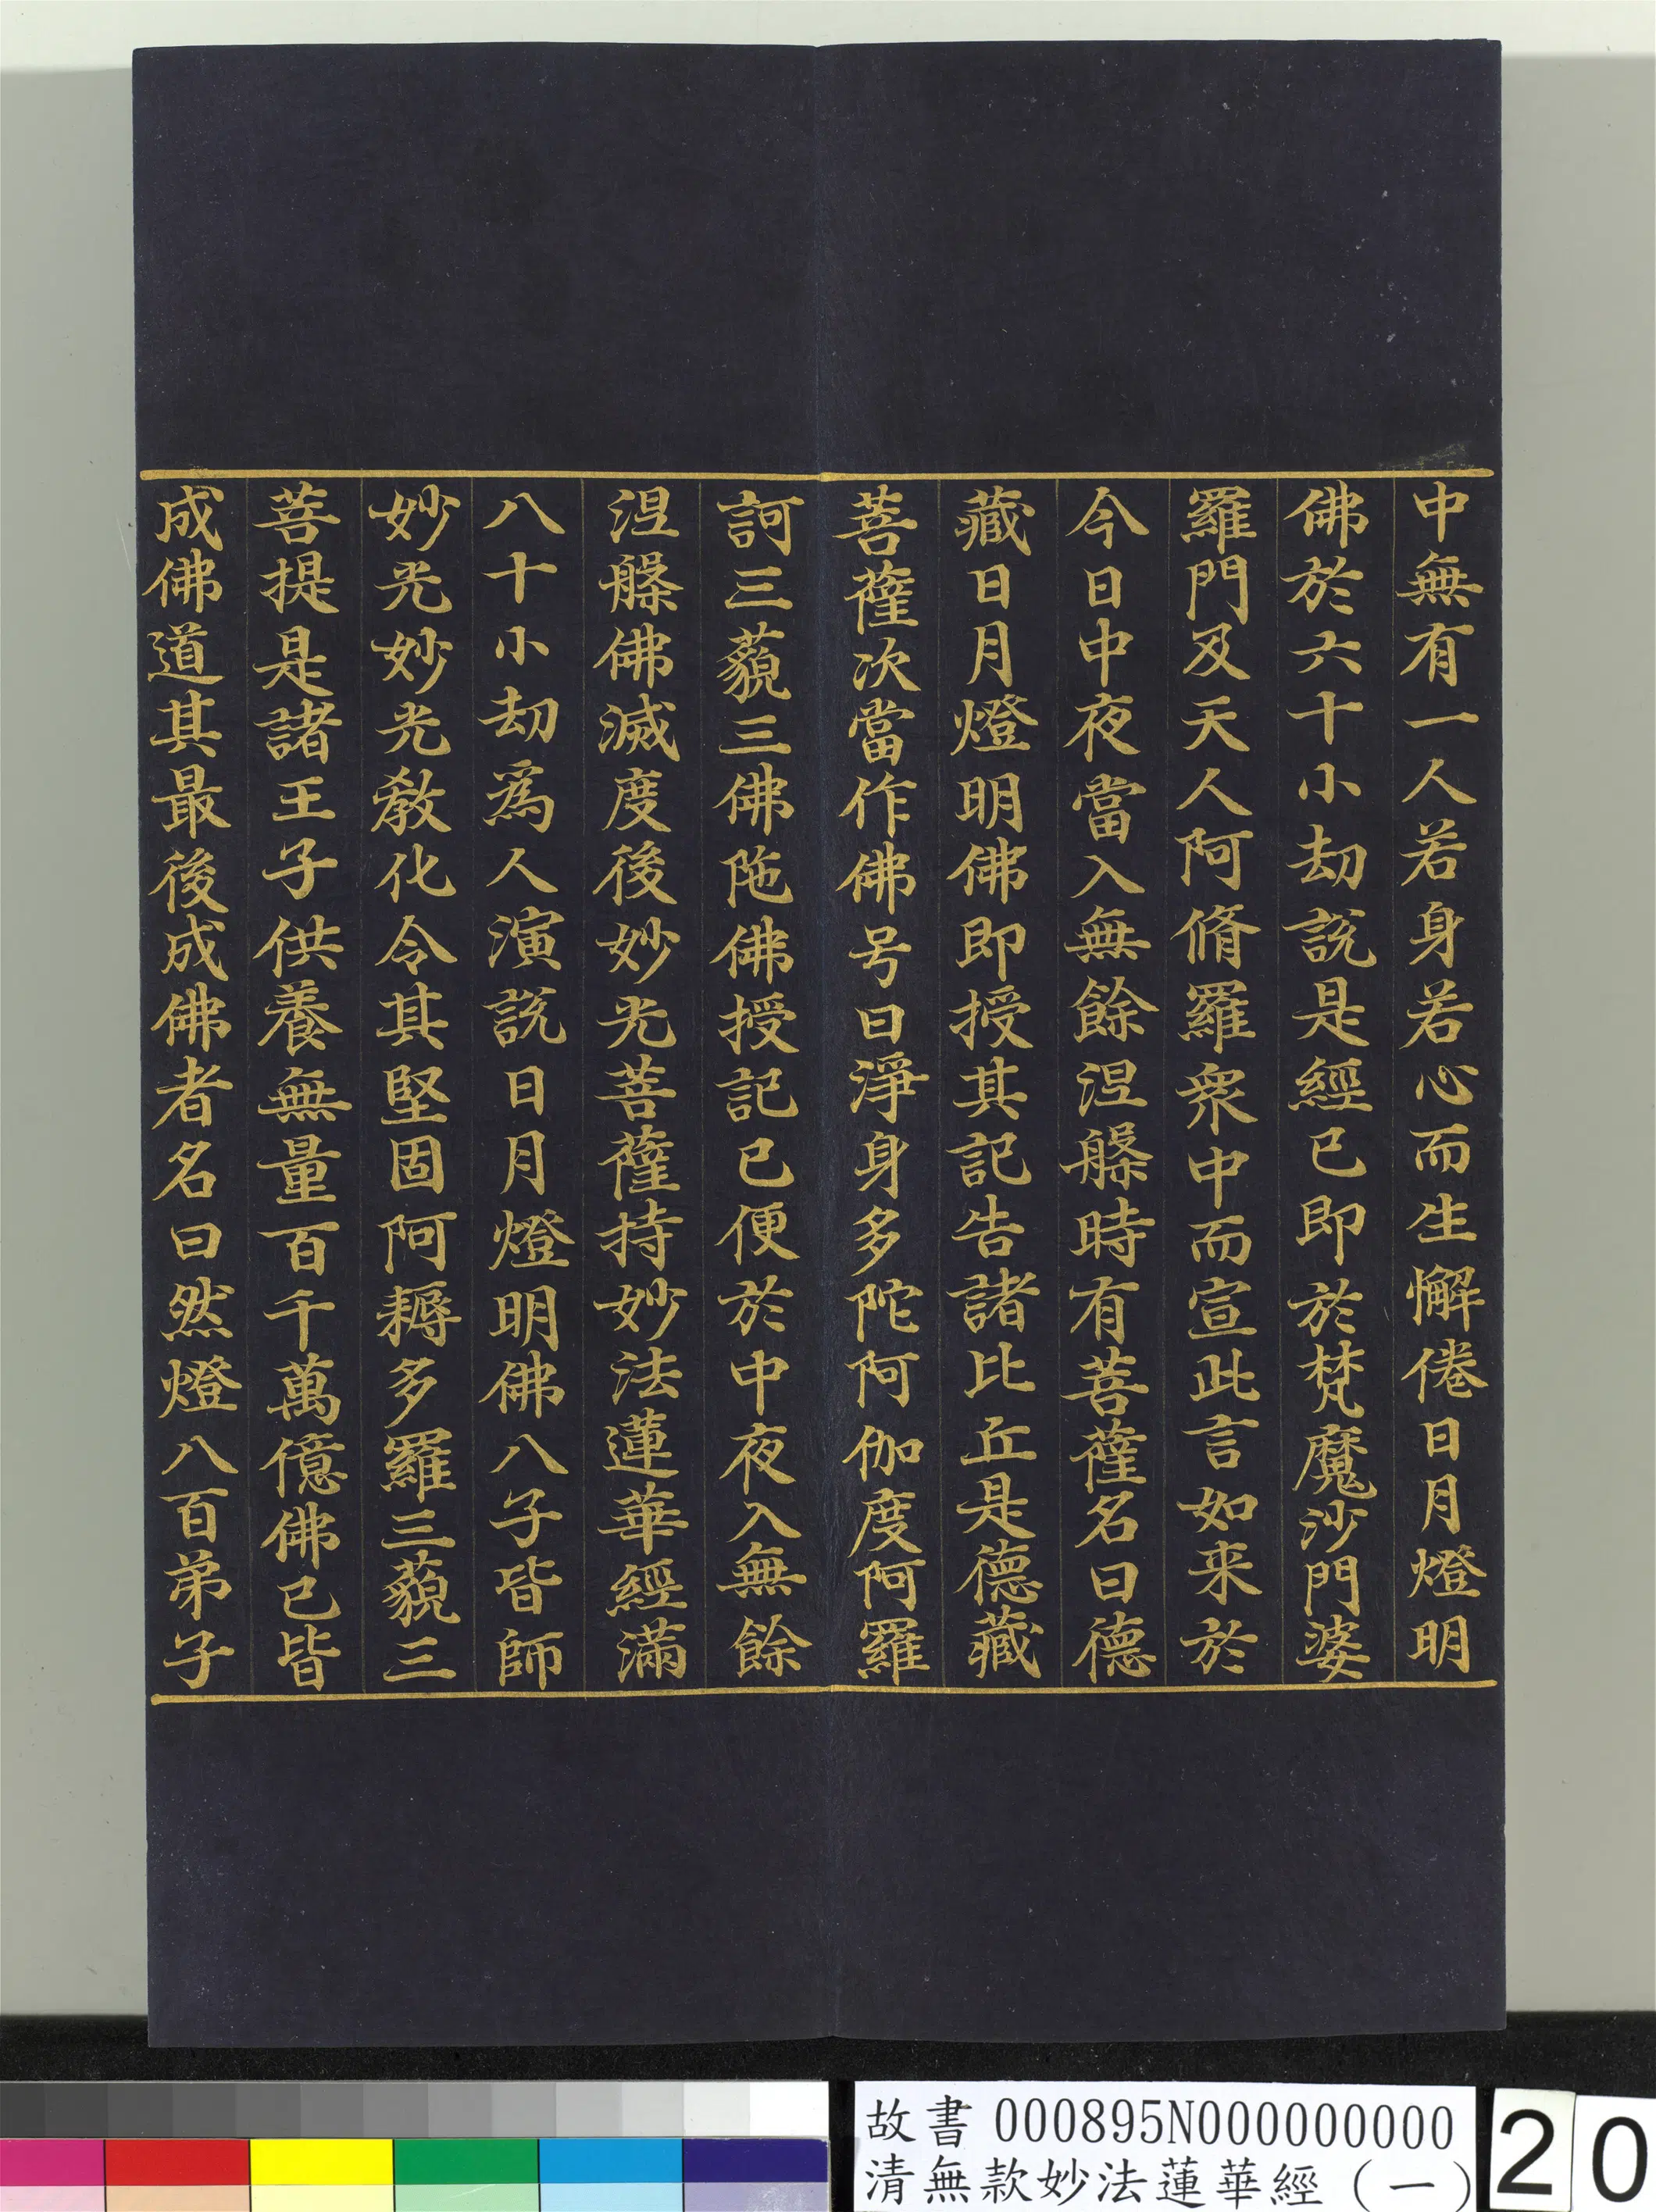 中無有一人若身若心而生懈倦日月燈明
佛於六十小劫說是經已即於梵魔沙門婆
羅門及天人阿脩羅衆中而宣此言如来於
今日中夜當入無餘涅槃時有菩薩名曰德
藏日月燈明佛即授其記告諸比丘是德藏
菩薩次當作佛号曰淨身多陀阿伽度阿羅
訶三藐三佛陁佛授記已便於中夜入無餘
涅槃佛滅度後妙光菩薩持妙法蓮華經滿
八十小劫為人演說日月燈明佛八子皆師
妙光妙光教化令其堅固阿耨多羅三藐三
菩提是諸王子供養無量百千萬億佛已皆
成佛道其最後成佛者名曰然燈八百弟子
故書 000895N000000000
清無款妙法蓮華經(一)
20